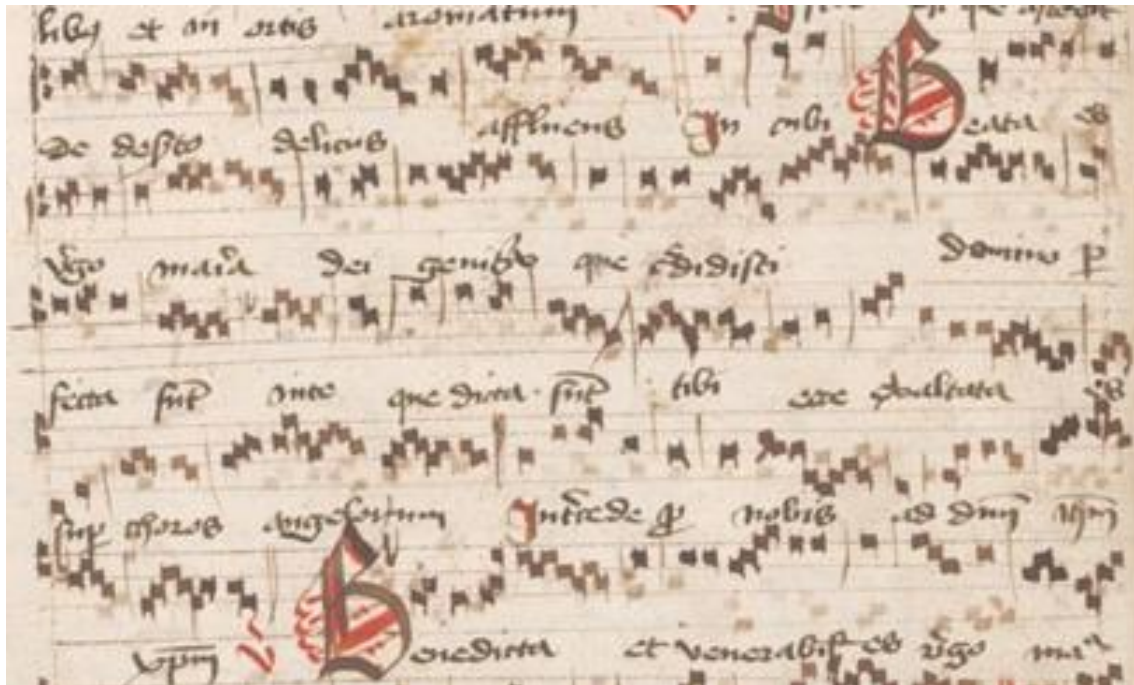 libȝ et in ortis aromatum
de desto delicijs affluens In cubi Beata es
v̓go mar̓a dei genit̓x que c̓didisti domino ꝑ
fecta sūt inte que dicta sūt tibi ecce exaltata es
sup choros angelorum Int̓cede ꝓ nobis ad dn̄m ihm̄
xp̄m ℣ Benedicta et venerabil̓ es v̓go maᵃ